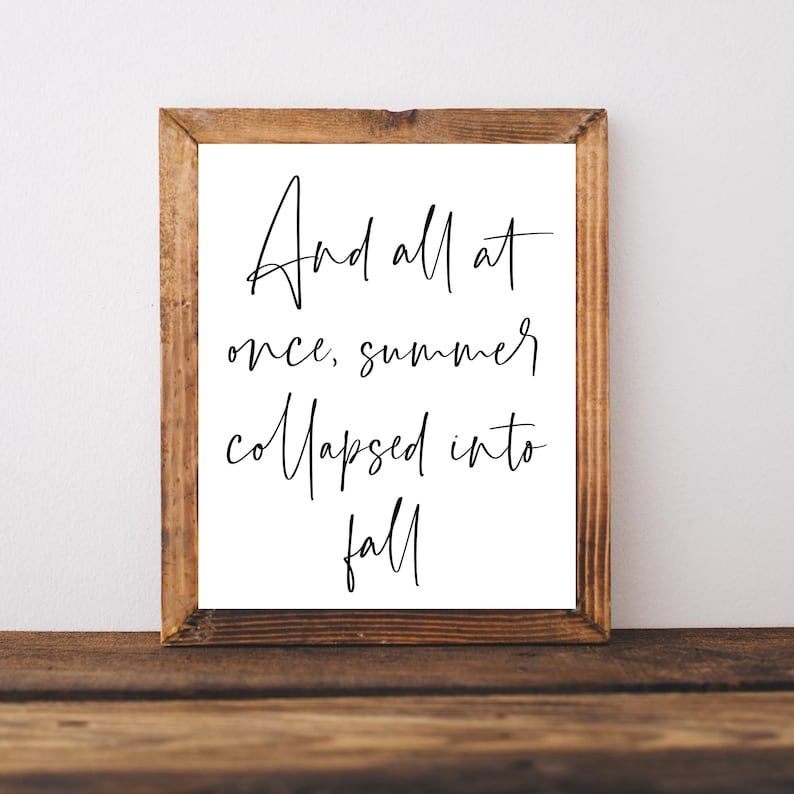 And all at
once, summer
collapsed into
fall